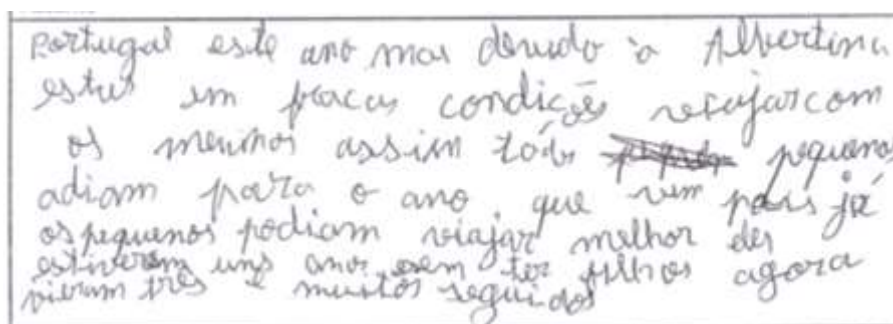 Portugal este ano mas devido à Albertina
estar em fracas condições viajar com
os meninos assim tão pequenos
adiam para o ano que vem pois já
os pequenos podiam viajar melhor eles
estiveram uns anos sem ter filhos agora
vieram três e muitos seguidos